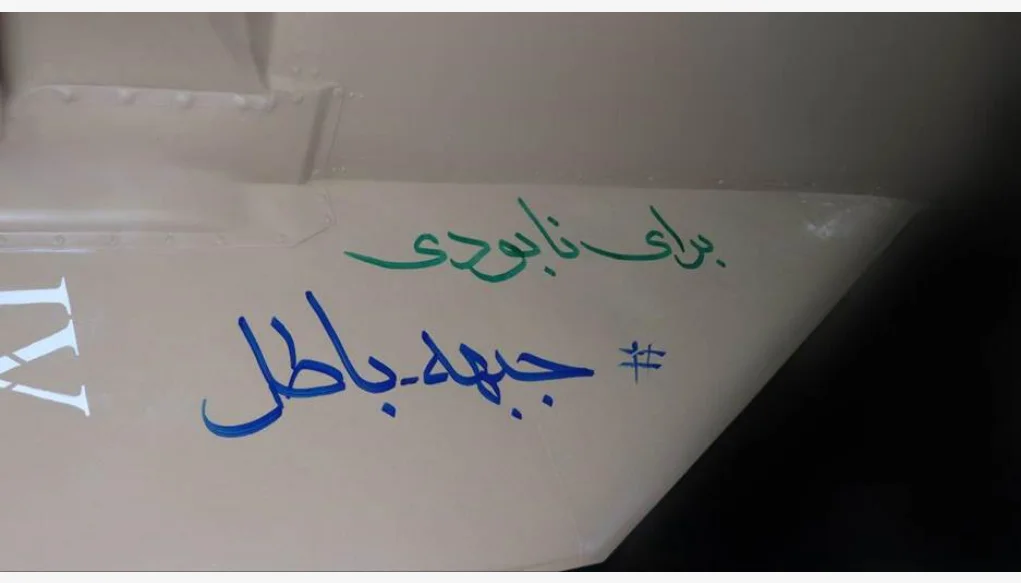 برای نابودی
# جبهه_باطل
IV